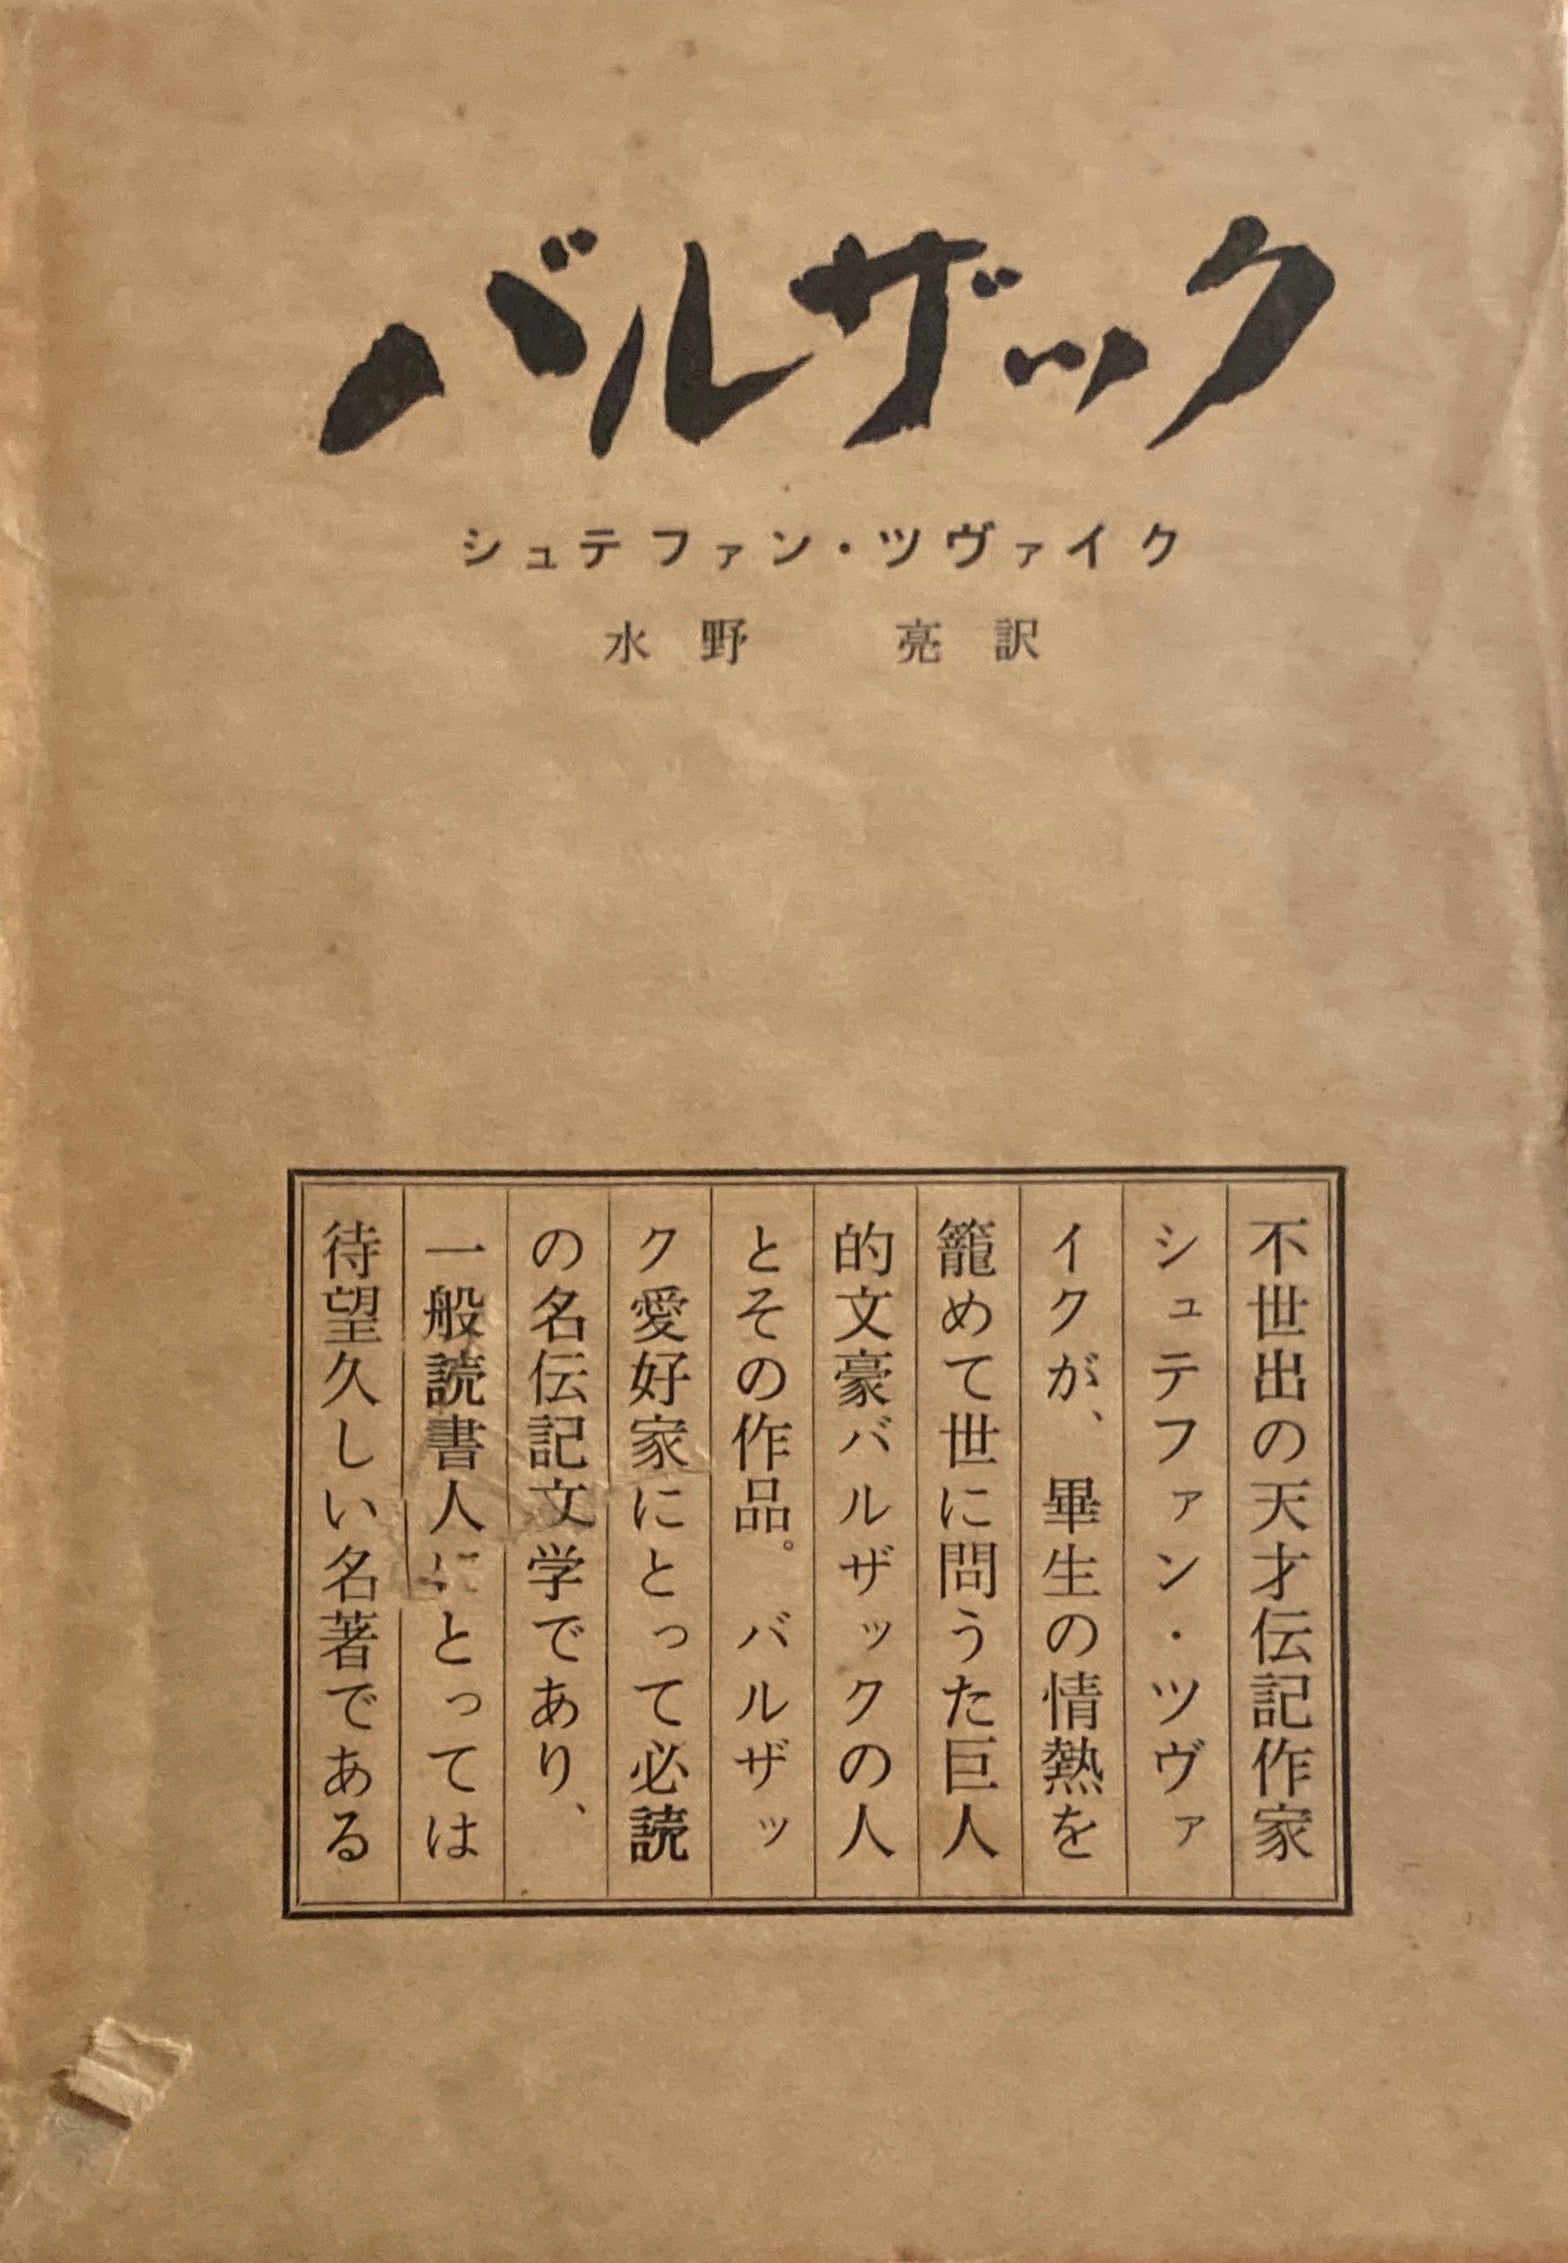 バルザック
シュテファン・ツヴァイク
水野 亮訳
不世出の天才伝記作家
シュテファン・ツヴァ
イクが、畢生の情熱を
籠めて世に問うた巨人
的文豪バルザックの人
とその作品。バルザッ
ク愛好家にとって必読
の名伝記文学であり、
一般読書人にとっては
待望久しい名著である